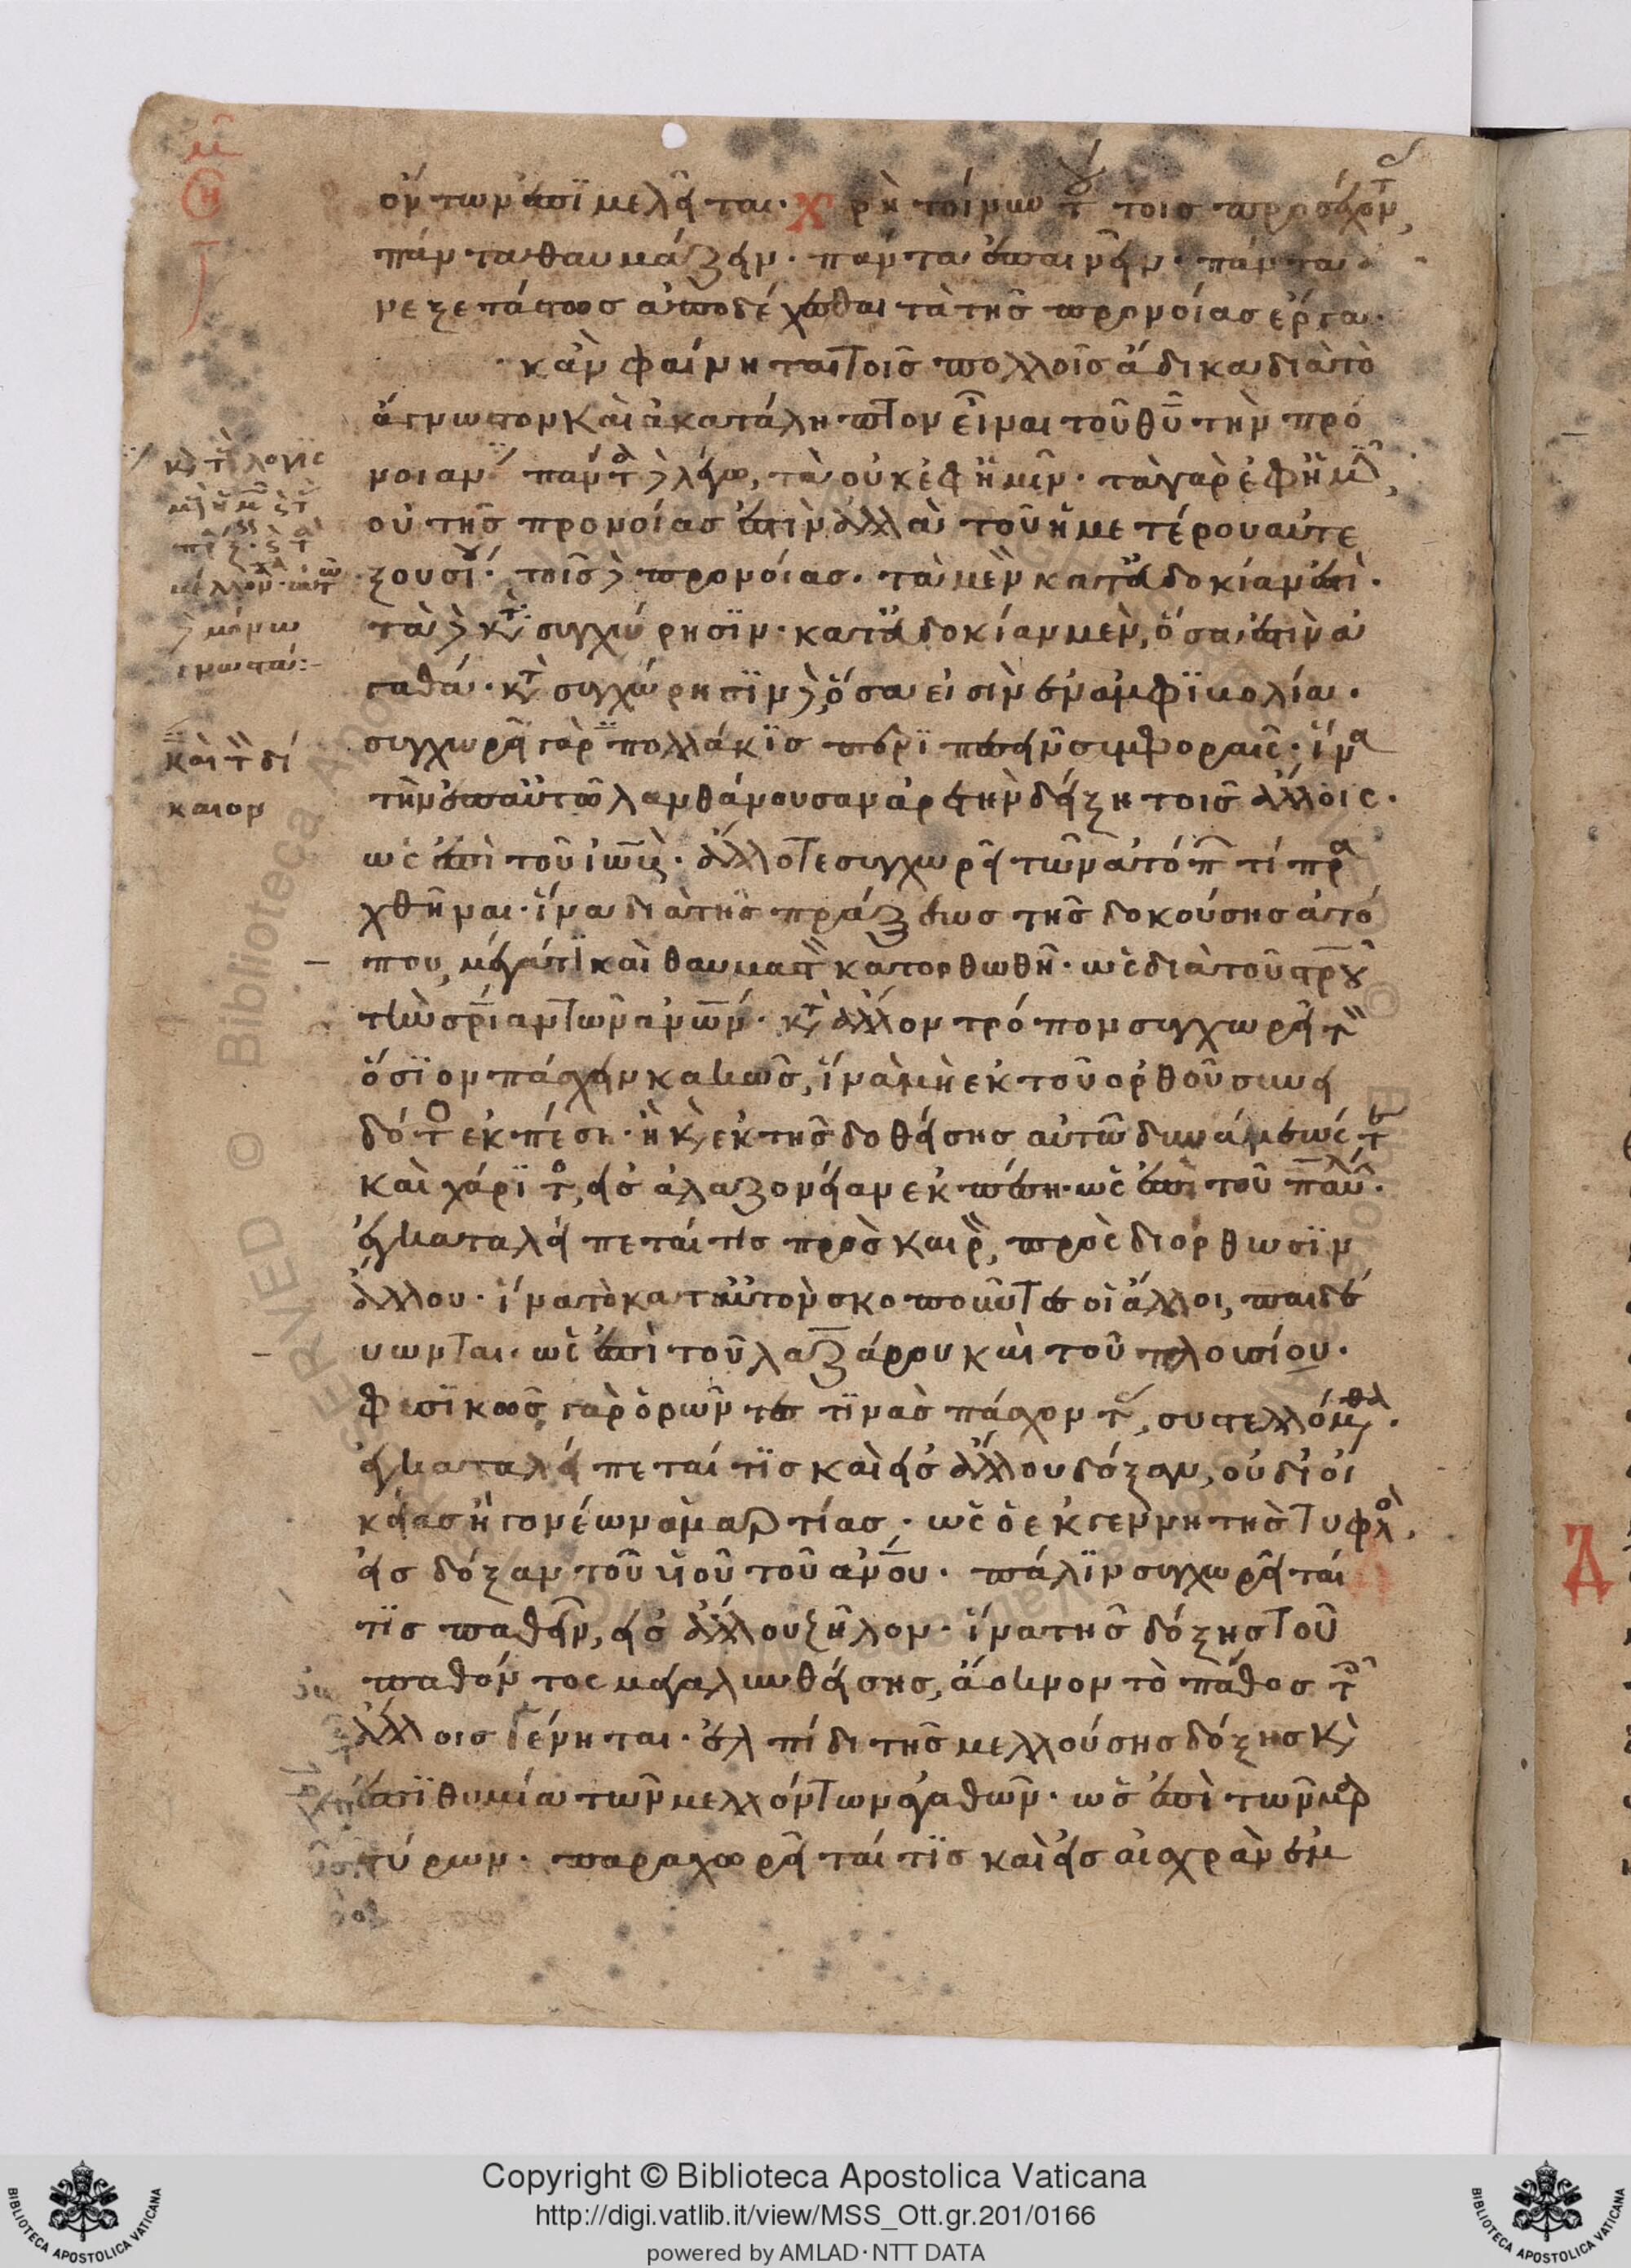 ὄντων ἐπιμελεῖται. Χρὴ τοίνυν τούτοις προσέχοντ
πάντα θαυμάζειν. πάντα ἐπαινεῖν. πάντα ἀ
νεξετάστως ἀποδέχεσθαι τὰ τῆς προνοίας ἔργα.
κἂν φαίνηται τοῖς πολλοῖς ἄδικα διὰ τὸ
ἄγνωστον καὶ ἀκατάληπτον εἶναι τοῦ θυ τὴν πρό
νοιαν. πάντα δὲ λέγω, τὰ οὐκ ἐφ ἡμῖν. τὰ γὰρ ἐφ ἡμῖν,
οὐ τῆς προνοίας ἐστὶν ἀλλὰ τοῦ ἡμετέρου αὐτε
ξουσίου. τῆς δὲ προνοίας. τὰ μὲν κατ εὐδοκίαν ἐστὶ.
τὰ δὲ κατὰ συγχώρησιν. κατ εὐδοκίαν μὲν, ὅσα ἐστὶν ἀ
γαθά. κατὰ συγχώρησιν δὲ, ὅσα εἰσὶν ἐν ἀμφιβολία.
συγχωρεῖ γὰρ πολλάκις περιπεσεῖν συμφοραῖς. ἵνα
τὴν ἐν αὐτῶ λανθάνουσαν ἀρετὴν δείξη τοῖς ἄλλοις.
ὡς ἐπὶ τοῦ ἰώβ. ἄλλοτε συγχωρεῖ τῶν ἀτόπων τί πρα
χθῆναι. ἵνα διὰ τῆς πράξεως τῆς δοκούσης ἀτό
που, μέγα τι καὶ θαυμαστὸν κατορθωθῆ. ὡς διὰ τοῦ στρου
τὴν σριαν τῶν ανων. κατ ἄλλον τρόπον συγχωρεῖ τὸν
ὅσιον πάσχειν κακῶς, ἵνα μὴ ἐκ τοῦ ὀρθοῦ συνει
δότος ἐκπέση. ἢ καὶ ἐκ τῆς δοθείσης αὐτῶ δυνάμεώς τε
καὶ χάριτος, εἰς ἀλαζονείαν ἐκπέση. ὡς ἐπὶ τοῦ παύλου.
ἐγκαταλείπεταί τις πρὸς καιρὸν, πρὸς διόρθωσιν
ἄλλου. ἵνα τὸ κατ αὐτὸν σκοποῦντες οἱ ἄλλοι, παιδεύ
ωνται. ὡς ἐπὶ τοῦ λαζάρου καὶ τοῦ πλουσίου.
φυσικῶς γὰρ ὁρῶντες τινὰς πάσχοντας, συστελλόμεθα.
ἐγκαταλείπεταί τις καὶ εἰς ἄλλου δόξαν, οὐ δι οἰ
κείας ἢ γονέων ἁμαρτίας. ὡς ὁ ἐκ γεννητῆς τυφλὸς,
εἰς δόξαν τοῦ υἱοῦ τοῦ ανου. πάλιν συγχωρεῖταί
τις παθεῖν, εἰς ἄλλου ζῆλον. ἵνα τῆς δόξης τοῦ
παθόντος μεγαλυνθείσης, ἄοκνον τὸ πάθος τοῖς
ἄλλοις γένηται. ἐλπίδι τῆς μελλούσης δόξης καὶ
ἐπιθυμία τῶν μελλόντων ἀγαθῶν. ὡς ἐπὶ τῶν μαρ
τύρων. παραχωρεῖταί τις καὶ εἰς αἰσχρὰν ἐμ
καὶ τὸ δί
καιον
Copyright © Biblioteca Apostolica Vaticana
http://digi.vatlib.it/view/MSS_Ott.gr.201/0166
powered by AMLAD·NTT DATA
BIBLIOTECA APOSTOLICA VATICANA
BIBLIOTECA APOSTOLICA VATICANA